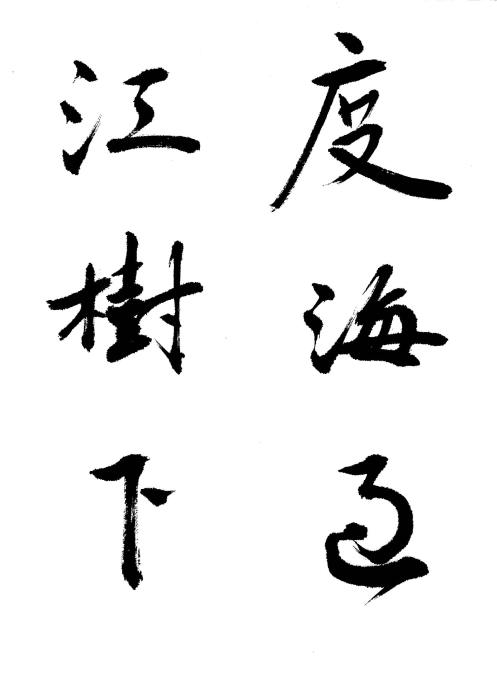 度海過
江樹下